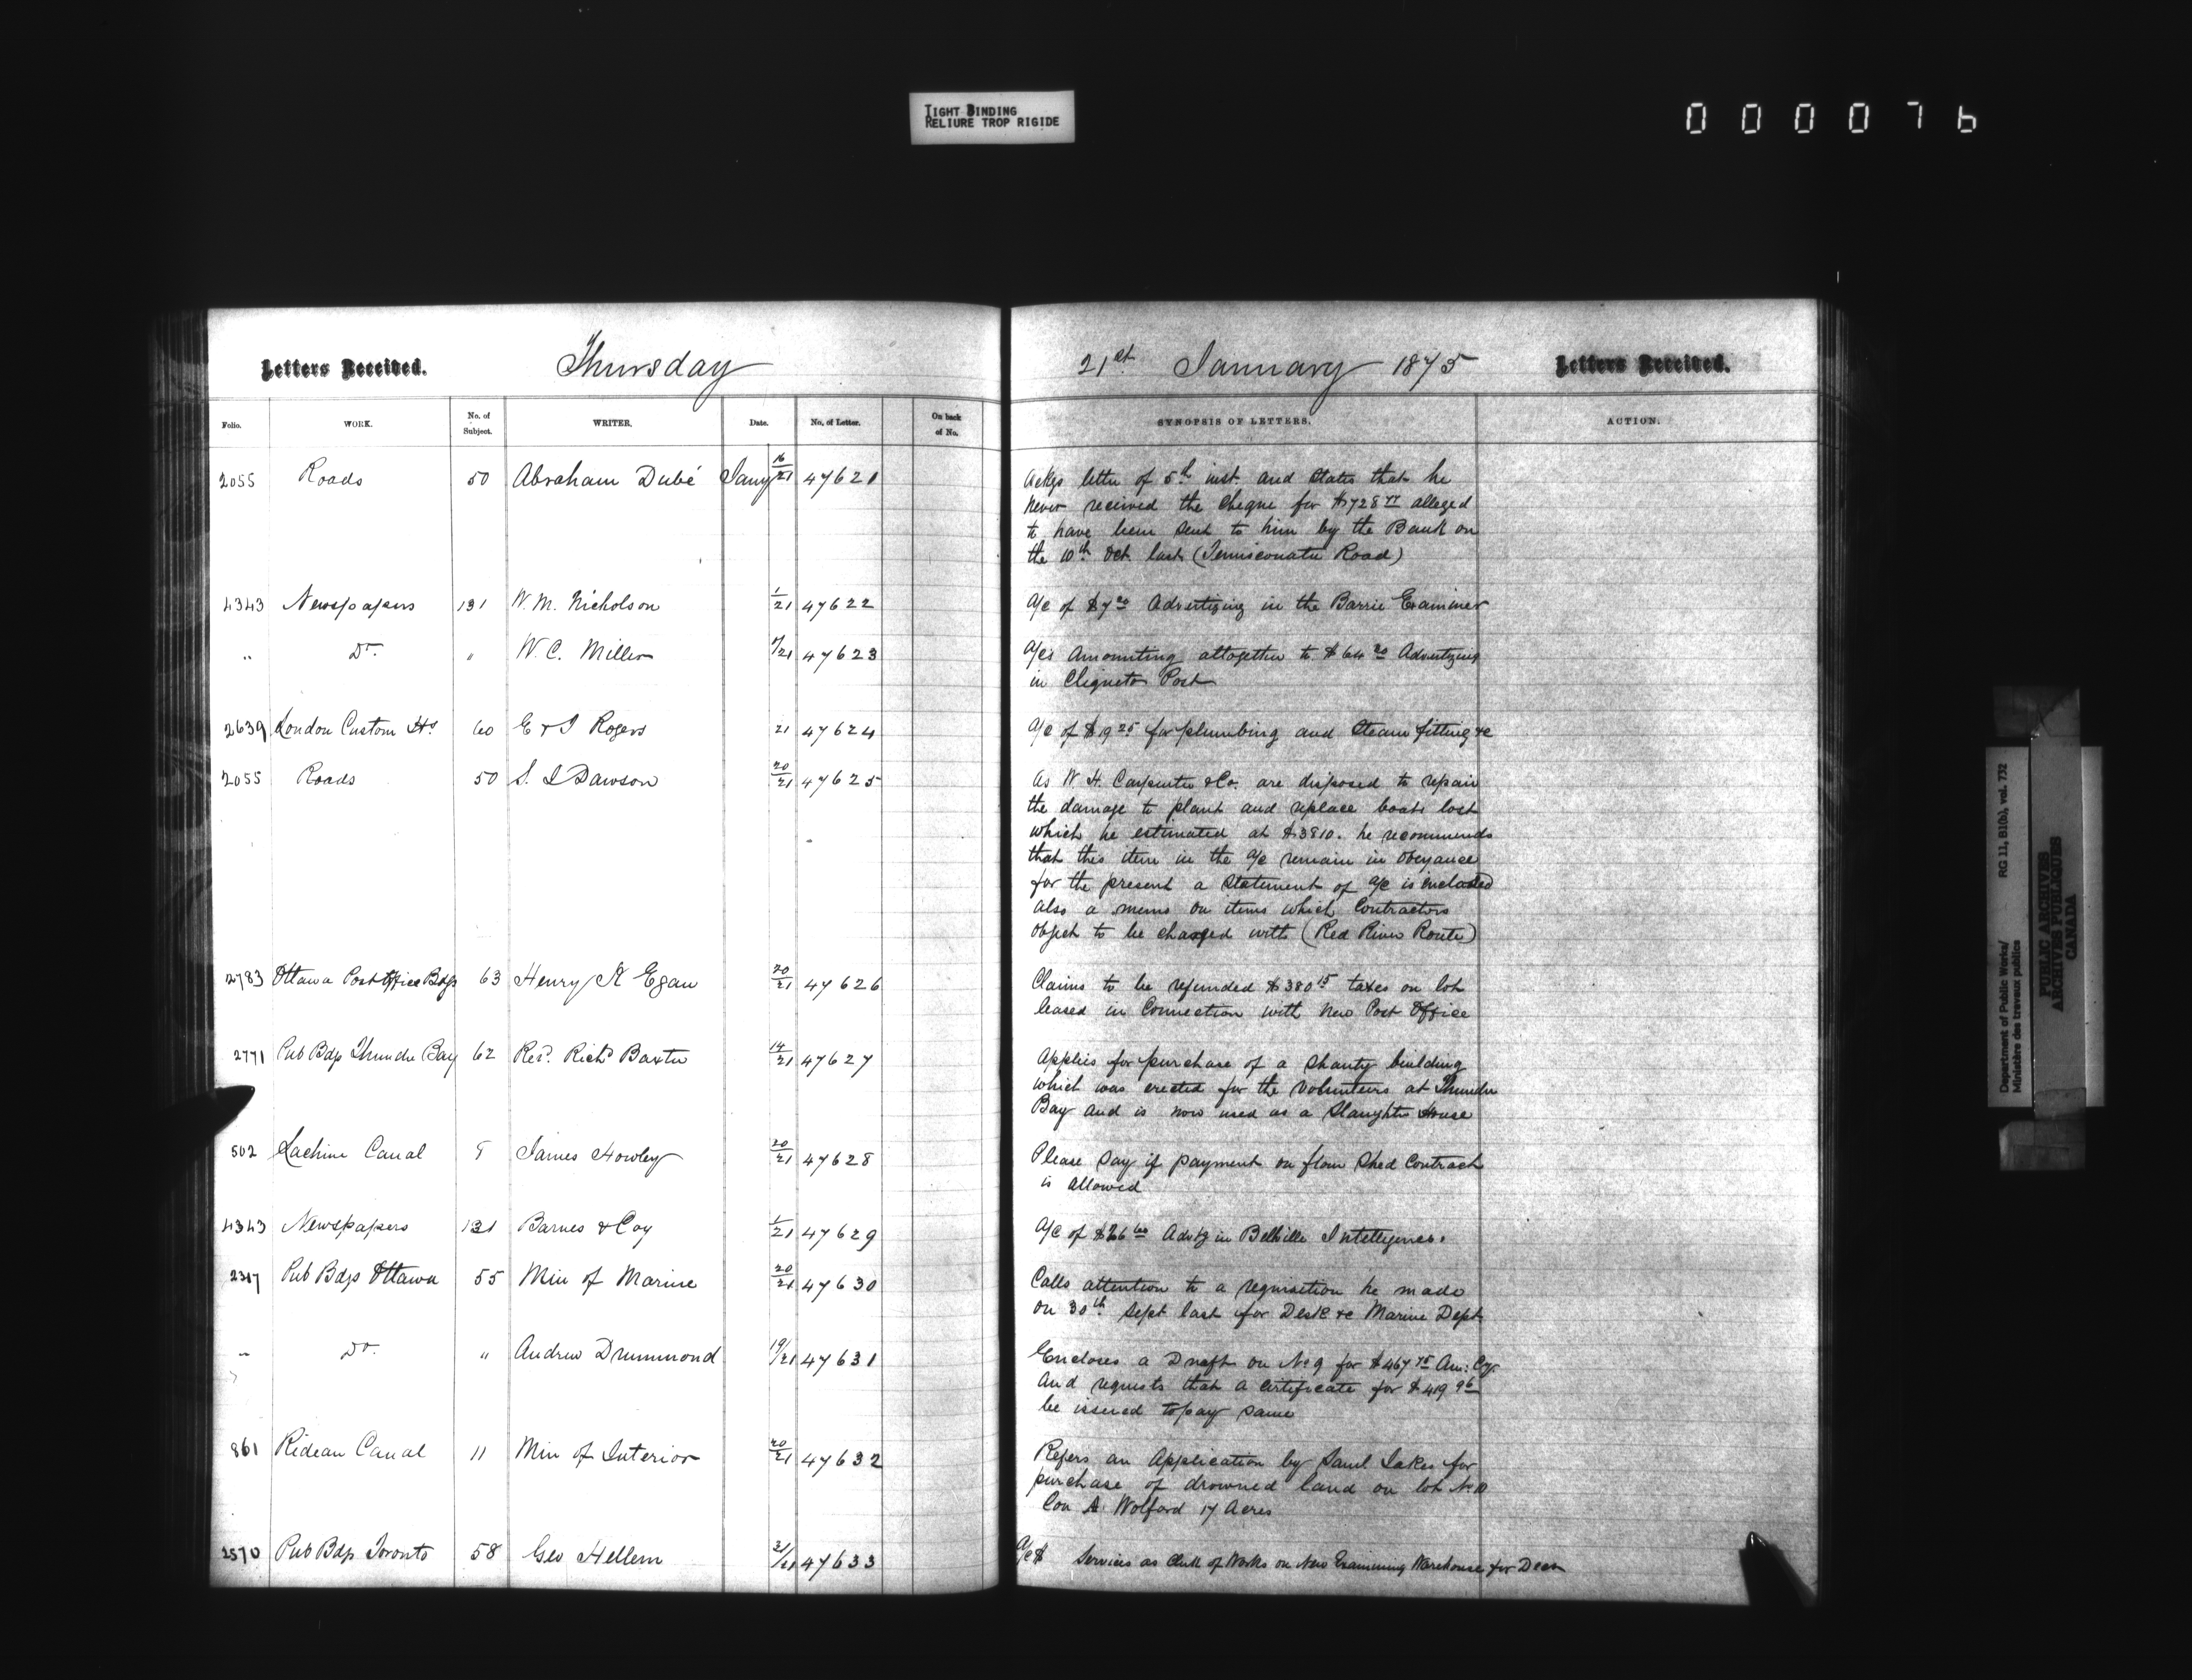 TIGHT BINDING
RELIURE TROP RIGIDE
0 0 0 0 7 6
Letters Received. Thursday
Folio. WORK. No. of Subject. WRITER. Date. No. of Letter. On back of No.
2055 Roads 50 Abraham Dubé Jany 16/21 47621
4343 Newspapers 131 W. M. Nicholson 1/21 47622
" Do. " W. C. Miller /21 47623
2639 London Custom Hs. 60 E & J Rogers 21 47624
2055 Roads 50 S. J Dawson 20/21 47625
2783 Ottawa Post Office Bdgs 63 Henry K Egan 20/21 47626
2771 Pub Bdgs Thunder Bay 62 Revd. Richd Baxter 14/21 47627
502 Lachine Canal 8 James Howley 20/21 47628
4343 Newspapers 131 Barnes & Coy 1/21 47629
2317 Pub Bdgs Ottawa 55 Min of Marine 20/21 47630
" Do. " Andrew Drummond 19/21 47631
861 Rideau Canal 11 Min of Interior 20/21 47632
2570 Pub Bdgs Toronto 58 Geo Hellem 21/21 47633
21st January 1875 Letters Received.
SYNOPSIS OF LETTERS. ACTION.
Ackgs letter of 5th inst. and states that he
never received the cheque for $728 alleged
to have been sent to him by the Bank on
the 10th Oct last (Temiscouata Road)
A/c of $7 20 Advertizing in the Barrie Examiner
A/cs Amounting altogether to $64 20 Advertizing
in Chignecto Post
A/c of $19 25 for plumbing and Steam fitting &c
As W. H. Carpenter & Co. are disposed to repair
the damage to plant and replace boats lost
which he estimated at $3810. he recommends
that this item in the a/c remain in Obeyance
for the present a Statement of a/c is enclosed
also a memo on items which Contractors
object to be charged with (Red River Route)
Claims to be refunded $380 15 taxes on lot
leased in Connection with New Post Office
Applies for purchase of a Shanty building
which was erected for the Volunteers at Thunder
Bay and is now used as a Slaughter House
Please say if payment on flour Shed Contract
is allowed
A/c of $26 60 Advtg in Belleville Intelligencer
Calls attention to a requisition he made
on 30th Sept last for Desk &c Marine Dept
Encloses a Draft on N. Y for $467 75 Am: Cy.
And requests that a Certificate for $419 96
be issued to pay same
Refers an Application by Saml Jakes for
purchase of drowned land on lot No. 10
Con A Wolford 17 Acres
A/c $ Services as Clerk of Works on New Examining Warehouse for Decr
Department of Public Works/ RG 11, B1(b), vol. 732
Ministère des travaux publics
PUBLIC ARCHIVES
ARCHIVES PUBLIQUES
CANADA